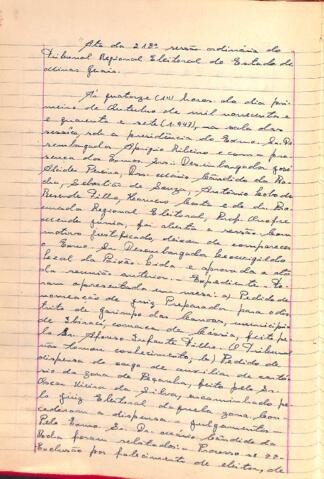 Ata da 218ª sessão ordinária do
Tribunal Regional Eleitoral do Estado de
Minas Gerais.
Às quatorze (14) horas do dia pri-
meiro de Outubro de mil novecentos e
e quarenta e sete (1.947), na sala das
sessões, sob a presidência do Exmo. Sr. De-
sembargador Aprigio Ribeiro e com a pre-
sença dos Exmos. Srs. Desembargador José
Alcides Pereira, Drs. Mário Cândido da Ro-
cha, Sebastião de Souza, Antônio
Rezende Filho, Costa e do Dr.
Regional Eleitoral, Prof. Onofre
Mendes Júnior, foi aberta a sessão. Com
motivo justificado, deixou de comparecer
o Exmo. Sr. Desembargador
da Paixão. Lida e aprovada a ata
da reunião anterior. Expediente. Fo-
ram apresentados em mesa: a) Pedido de
nomeação de Juiz Preparador para o dis-
trito de Garimpo das Canoas, município
de Ibiraci, comarca de Cássia, feito pe-
lo Sr. Afonso Infante Filho. O Tribunal
tomou conhecimento, b) Pedido de
dispensa do cargo de auxiliar de cartó-
rio da zona de Peçanha, feito pelo Sr.
Oscar Vieira da Silva, encaminhado pe-
lo Juiz Eleitoral daquela zona. Con-
cederam a dispensa. Julgamentos.
Pelo Exmo. Sr. Dr. Mário Cândido da
Rocha foram relatados: Processo nº 22
Exclusão por falecimento de eleitor, de